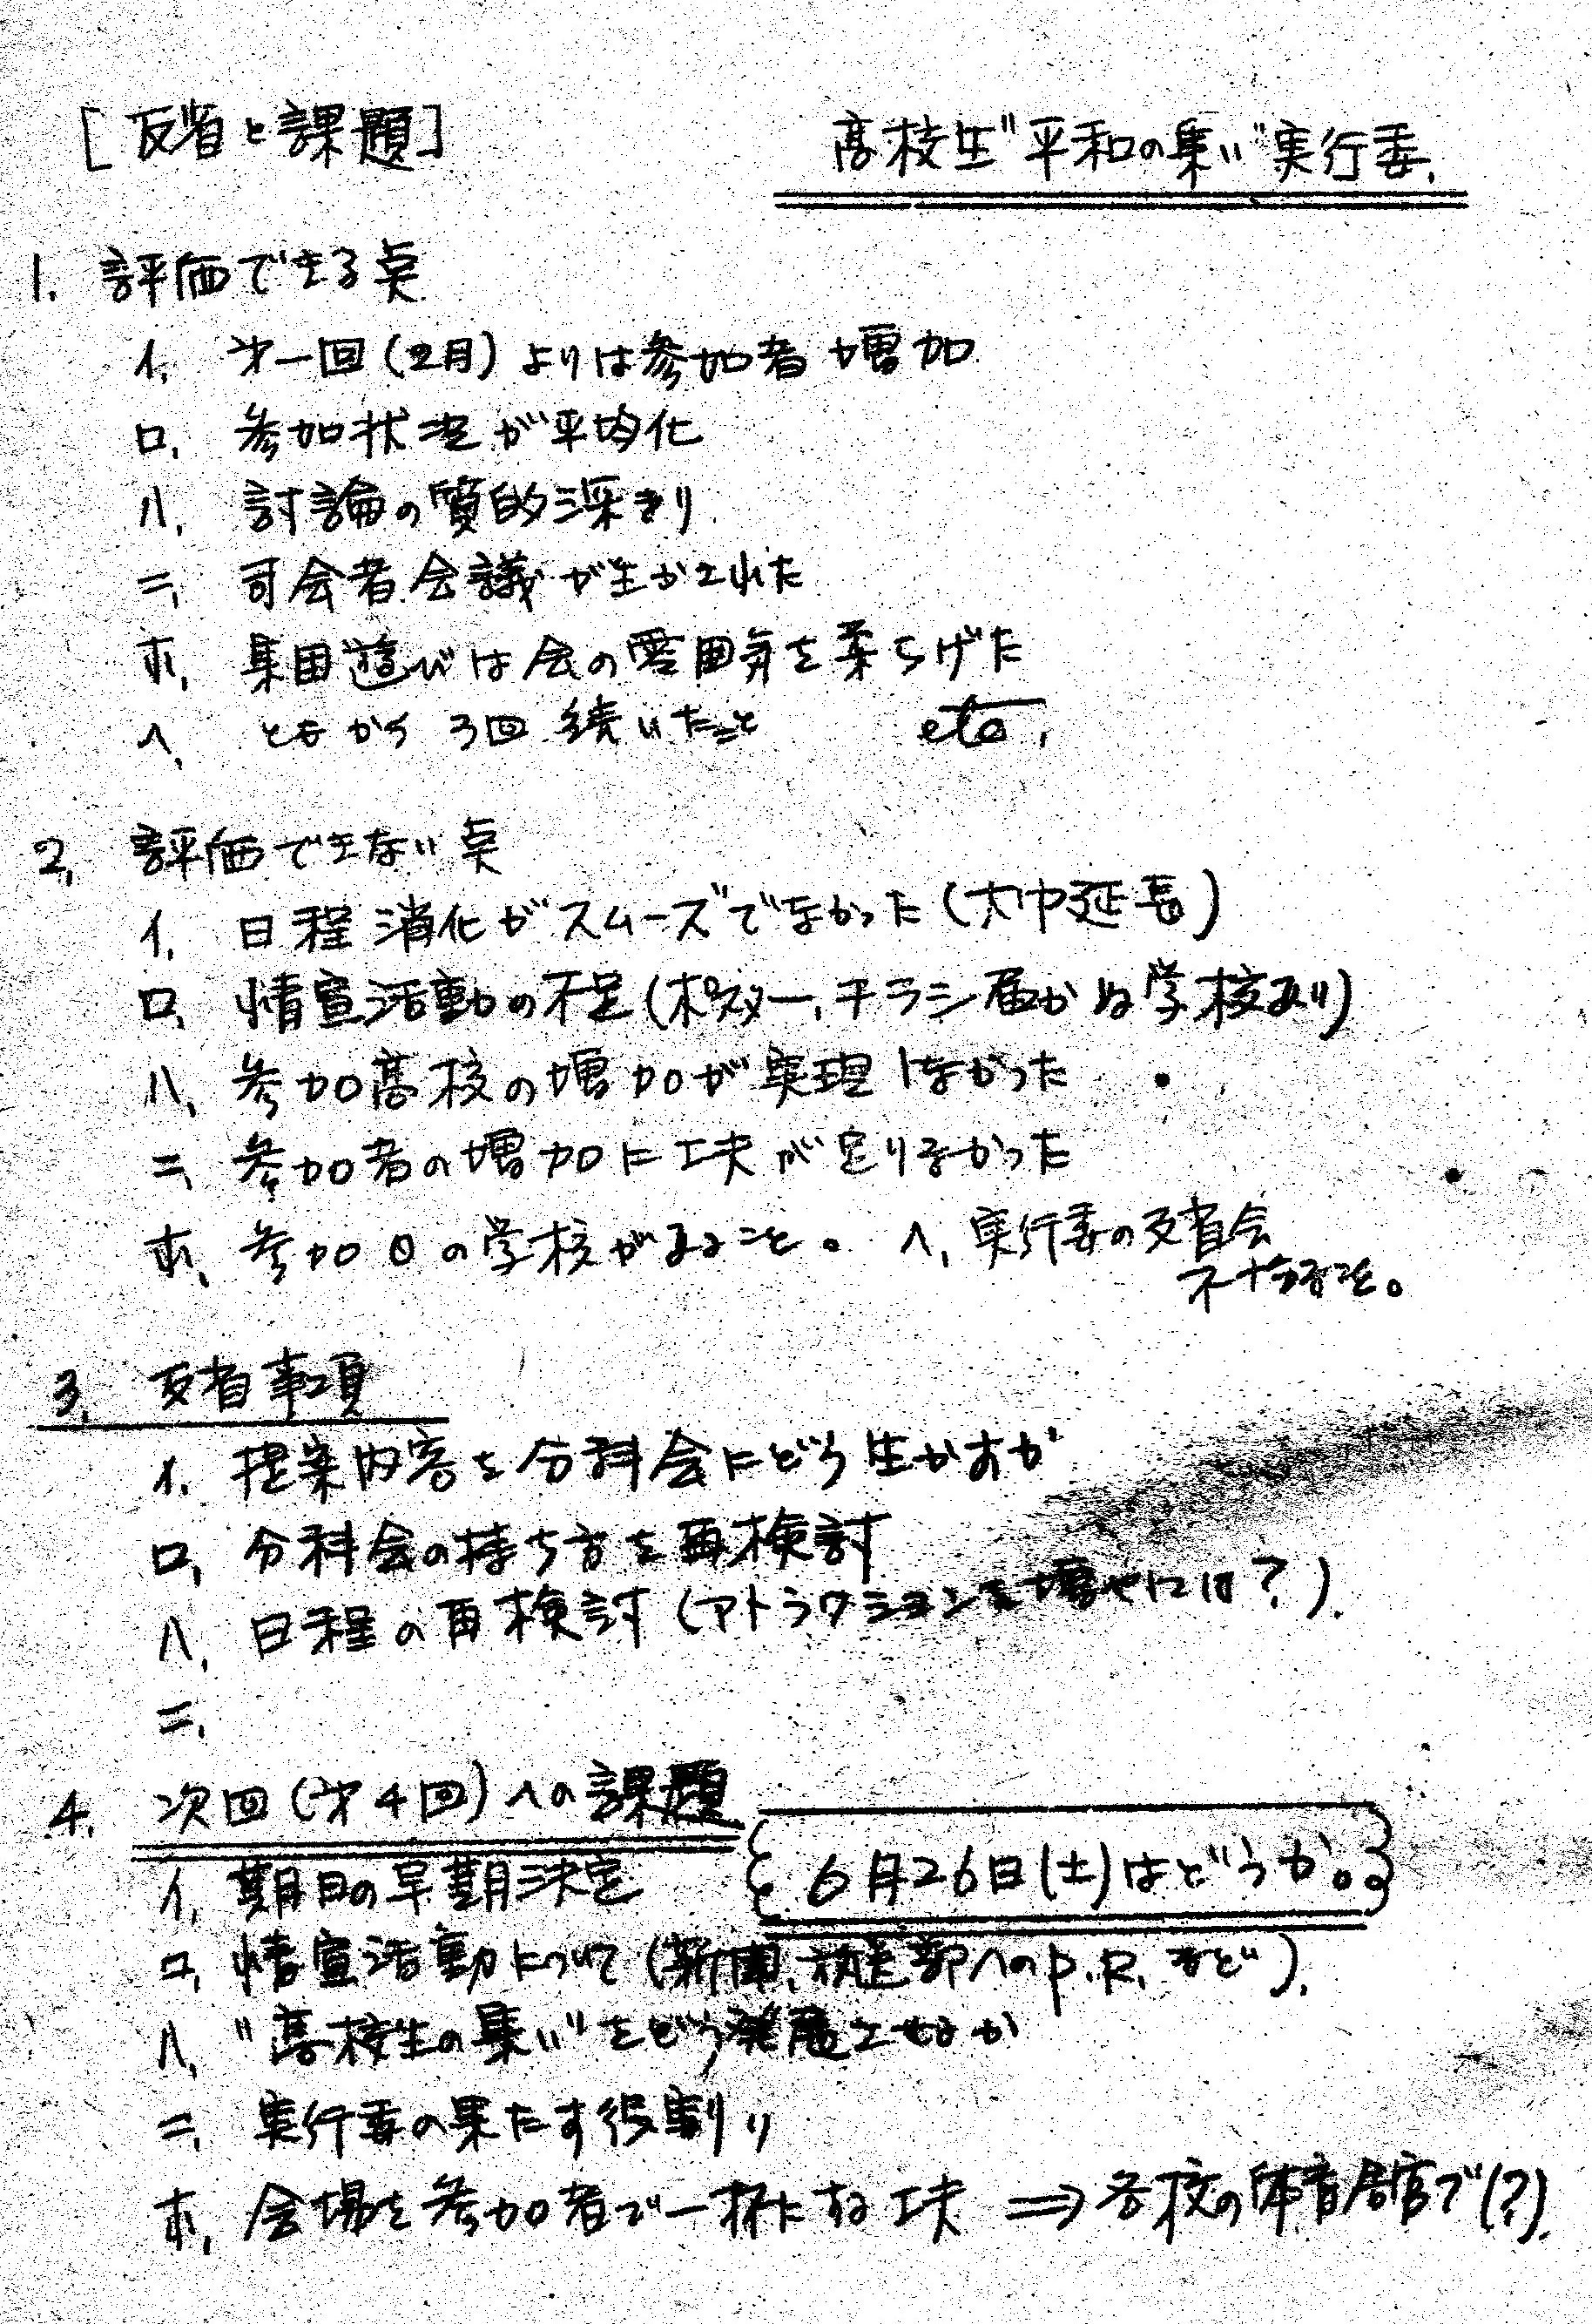 [反省と課題]
高校生"平和の集い"実行委.
1. 評価できる点
イ. 才一回(2月)よりは参加者増加
ロ. 参加状況が平均化
ハ. 討論の質的深まり
ニ. 司会者会議が生かされた
ホ. 集団遊びは会の雰囲気を柔らげた
ヘ. ともかく3回続いたこと etc.
2. 評価できない点
イ. 日程消化がスムーズでなかった(大巾延長)
ロ. 情宣活動の不足(ポスター,チラシ届かぬ学校あり)
ハ. 参加高校の増加が実現しなかった
ニ. 参加者の増加に工夫が足りなかった
ホ. 参加0の学校があること。 ヘ. 実行委の反省会
不十分なこと。
3. 反省事項
イ. 提案内容を分科会にどう生かすか
ロ. 分科会の持ち方を再検討
ハ. 日程の再検討(アトラクションを増やしては?).
ニ.
4. 次回(才4回)への課題
6月26日(土)はどうか。
イ. 期日の早期決定
ロ. 情宣活動について(新聞,放送部へのP.R.など).
ハ. "高校生の集い"をどう発展させるか
ニ. 実行委の果たす役割り
ホ. 会場を参加者で一杯にする工夫 ⇒各校の体育館で(?).